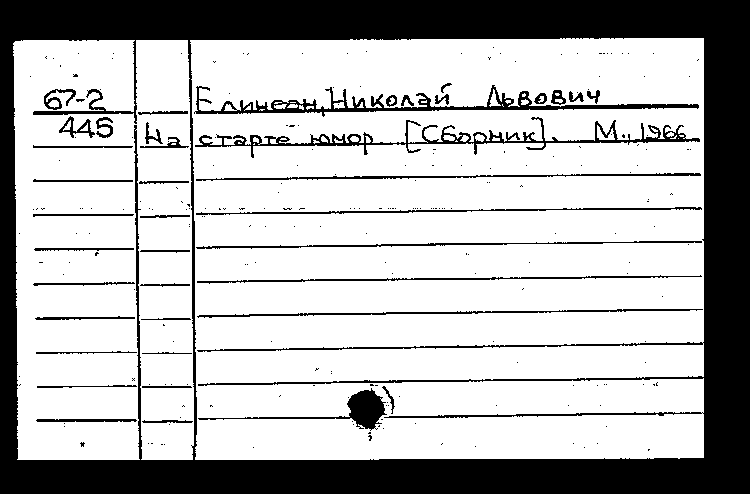 67-2 Елинсон, Николай Львович
445 На старте юмор [Сборник]. М., 1966